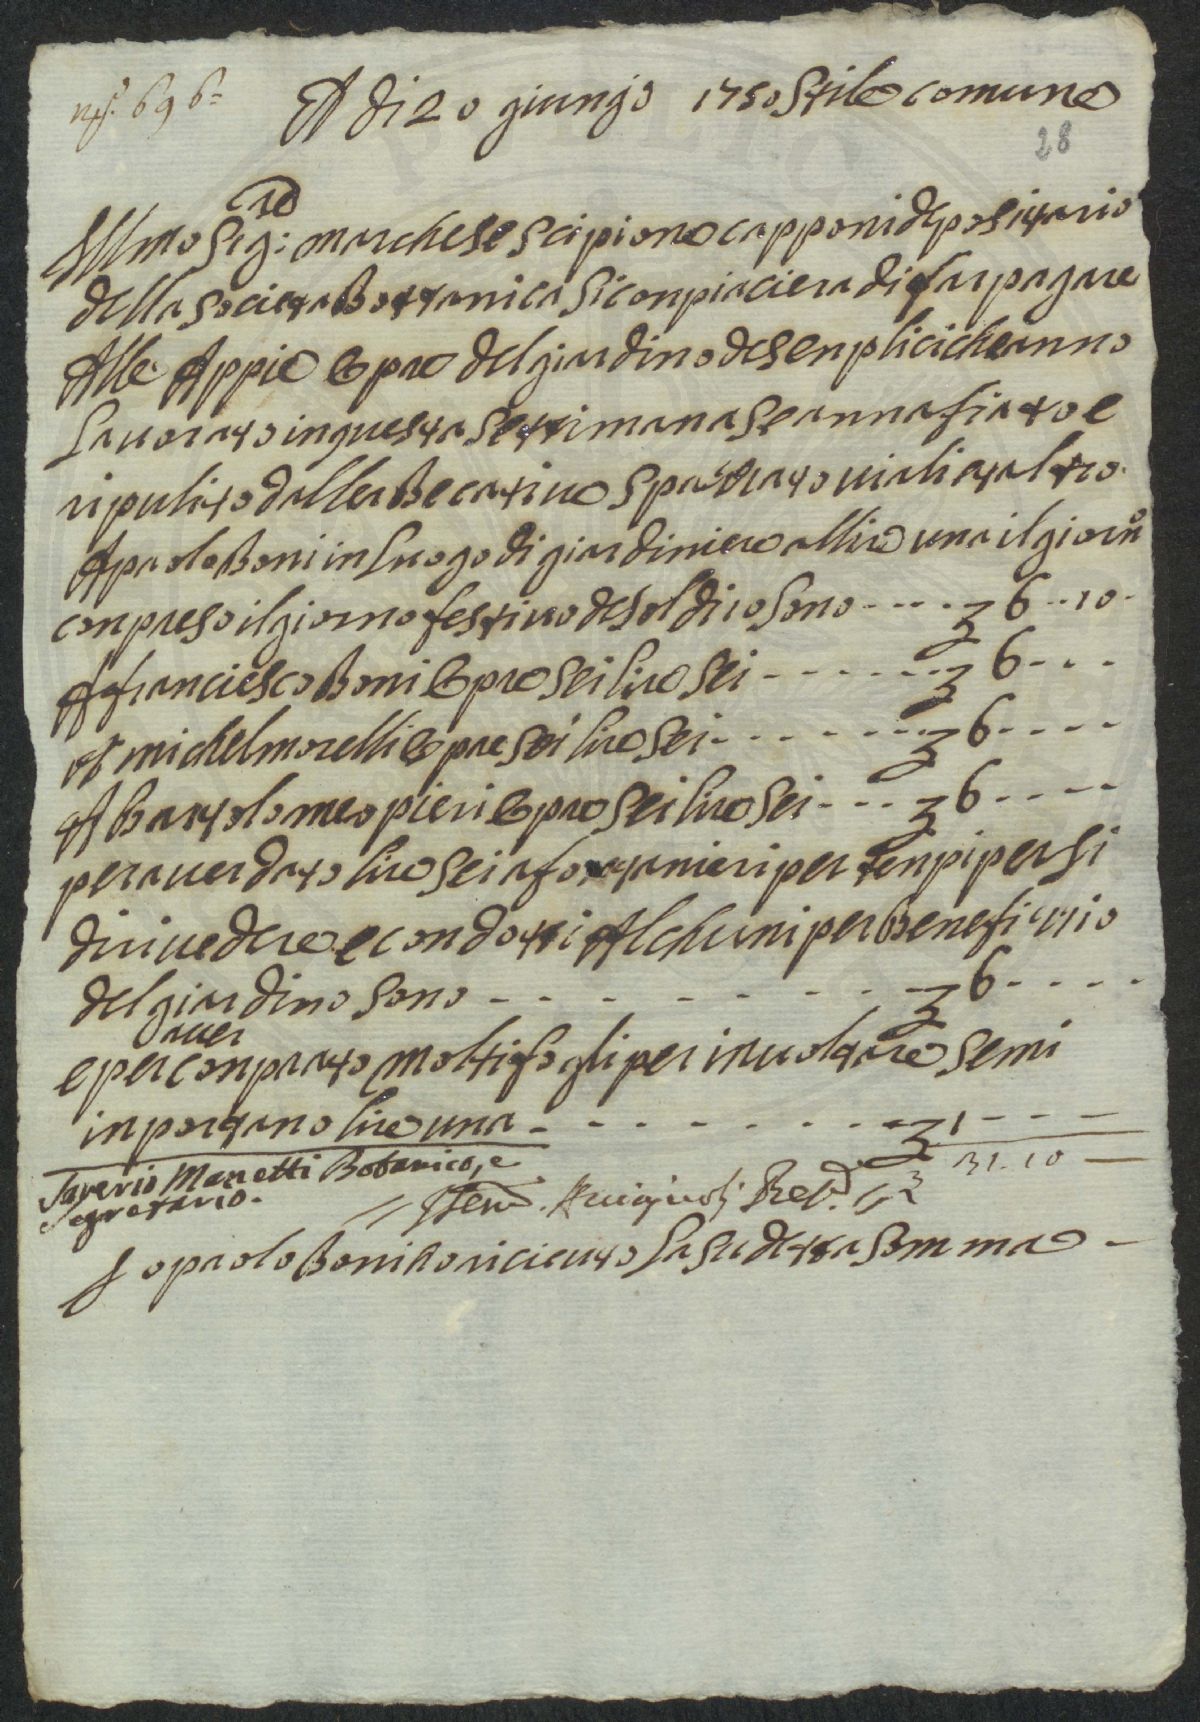 n.º 696=
A di 20 giungo 1750 Stile comune
28
Ill:mo Sig:re marchese scipione capponi depositario
della societa Bottanica si conpiaciera di far pagare
Alle Appie Opre del giardino de senplici che anno
Lauorato in questa settimana se annafiato e
ripulito dallerBe catiue spa viali et altro
A paolo Boni in Luogo di giardiniere allire una il giorno
conpreso il giorno festiuo de soldi 10 sono - - - - 6 - 10 -
A franciesco Boni Opre sei lire sei - - - - - - 6 - - -
A michel morelli Opre sei lire sei - - - - - - 6 - - - -
A Bartolomeo pieri Opre sei lire sei - - - 6 - - - -
per auer dato lire sei a fontanieri per tenpi persi
di riuedere e condotti Alchuni per Benefitio
del giardino sono - - - - - - - - 6 - - - -
e per auer conprato molti fogli per inuoltare semi
inportano lire una - - - - - - - - 1 - - -
31. 10 —
Saverio Manetti Botanico, e
Segretario.
io paolo Boni o ricieuto La sudetta somma —